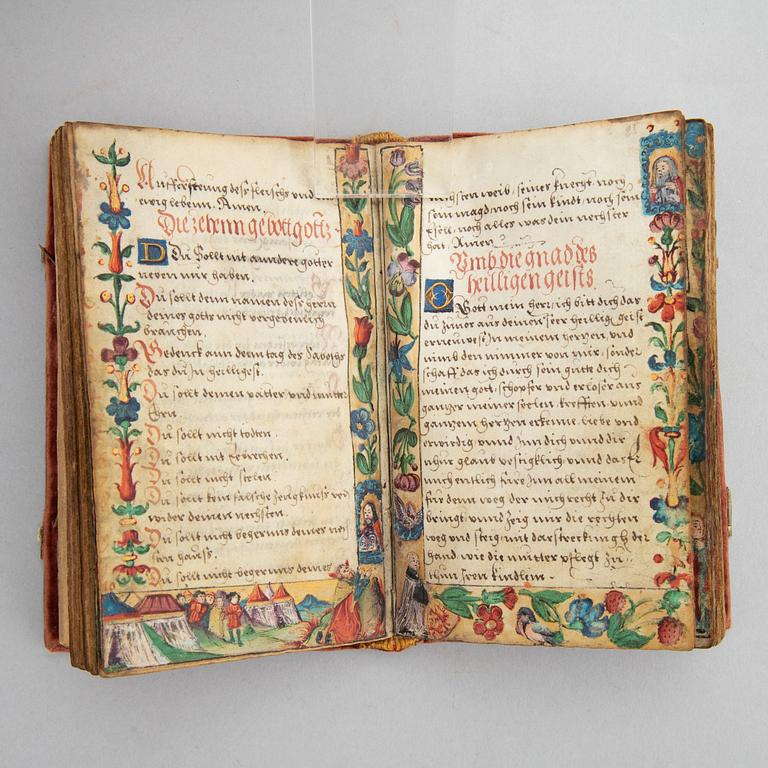 Auffersteung desß fleischs vnd
ewig lebenn. Amen.
Die zehenn gebott gottz
Du Sollt nit anndere götter
neben mir haben.
Du sollt denn namen deß herrn
deines gotts nicht vergebenlich
brauchen.
Bedenck ann denn tag des Saboths
das du In heiligest.
Du sollt deinen vatter vnd mutter
Eren.
Du sollt nicht todten.
Du sollt nit Eebrechen.
Du sollt nicht stelen.
Du sollt kein falsche Zeugknuss
wider deinen nechsten.
Du sollt nicht begern deines nech
sten hauss.
Du sollt nicht begern deines
nechsten weib, seines knecht noch
sein magd, noch sein kindt, noch sein
Esell, noch alles was dein nechster
hat. Amen
Vmb die gnad des
heilligen geists
O Gott mein herr, ich bitt dich das
du Inn aus deinen heillig geist
ernewest In meinem hertzen vnd
nimb den nimmer von mir, sonder
schaff das ich durch sein güte dich
meinen gott, schopfer vnd erlöser aus
gantzer meiner seelen, krefften vnnd
gantzem hertzen erkenne, liebe vnd
erwirdig vnnd Inn dich vnnd dir
nhur glaub vestigklich vnnd das
für In all meinem
für denn weg der mich recht zu dir
bringt vnnd zeig mir die rechten
weg vnd steig, mit das streckung der
hand, wie die mutter pflegt zu
thun Iren kindlein.